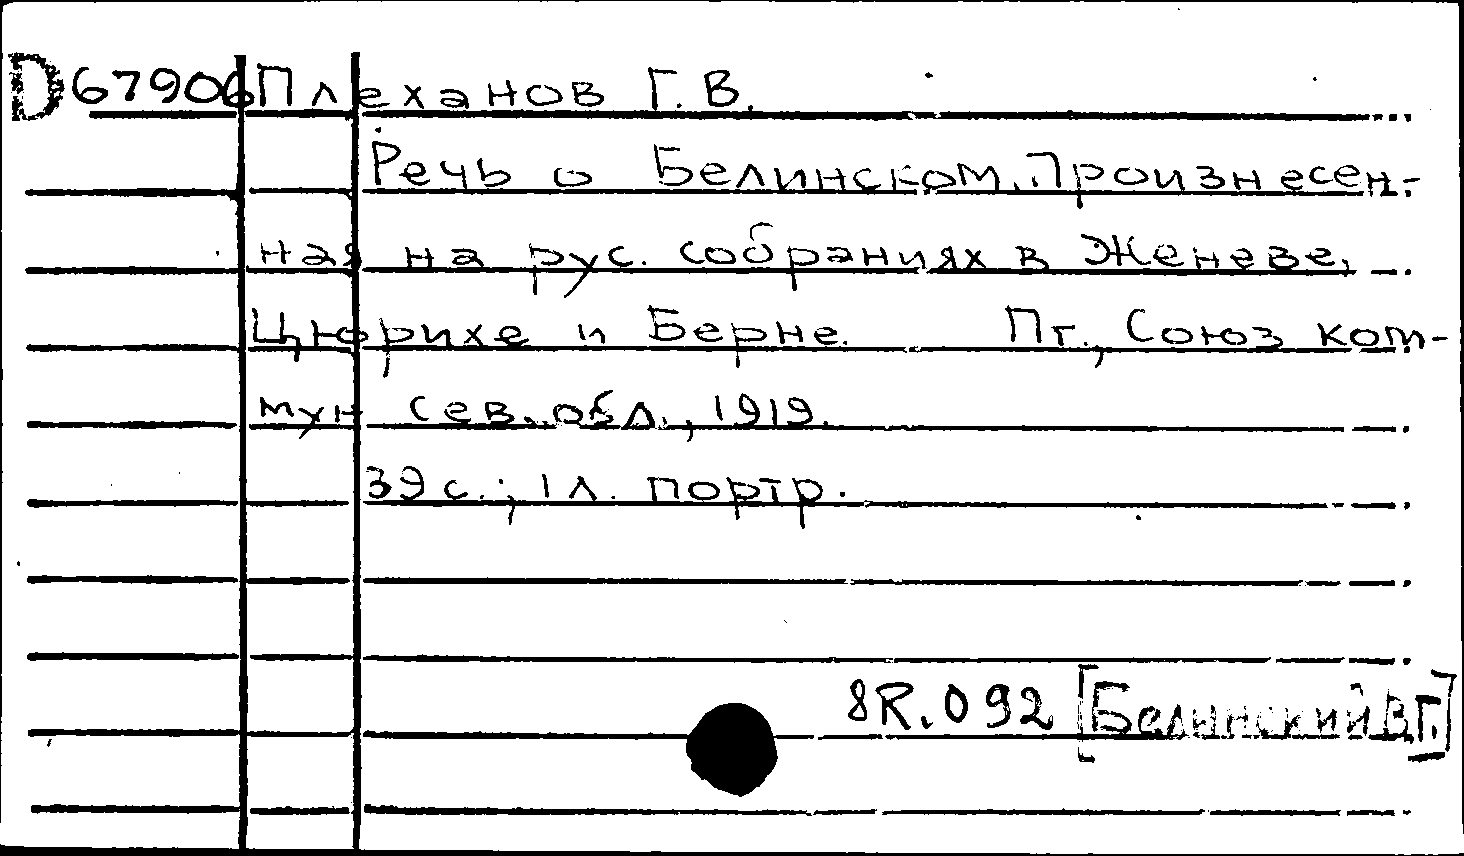 D67906 Плеханов Г.В.
Речь о Белинском. Произнесен-
ная на рус. собраниях в Женеве,
Цюрихе и Берне. Пг., Союз ком-
мун сев. обл., 1919.
39 с.; 1 л. портр.
8R.092 [Белинский В.Г.]